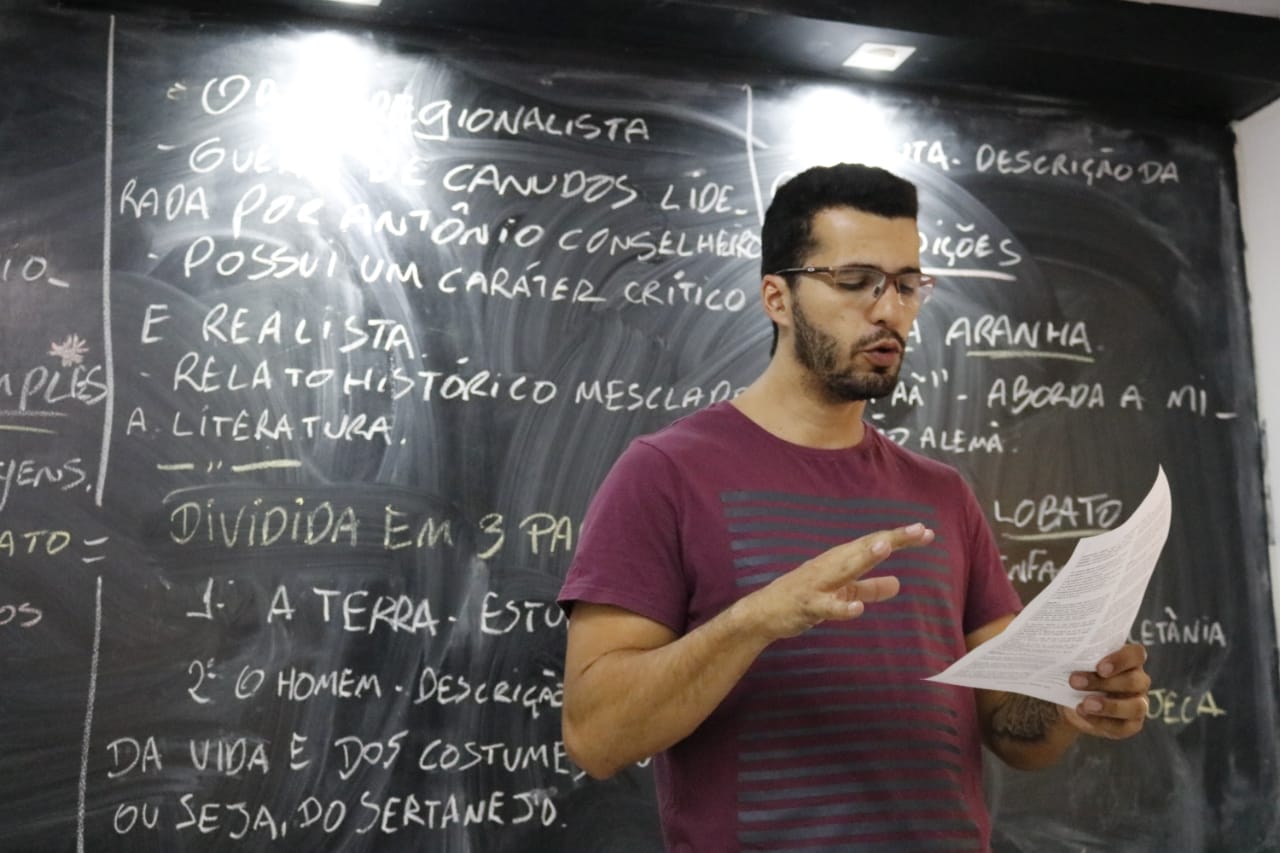 IO_
MPLES
GENS.
ATO =
OS
REGIONALISTA
- GUE DE CANUDOS LIDE_
RADA POR ANTÔNIO CONSELHEIRO
- POSSUI UM CARÁTER CRÍTICO
E REALISTA.
- RELATO HISTÓRICO MESCLADO
A LITERATURA.
— " —
DIVIDIDA EM 3 PA
1- A TERRA - ESTU
2ª O HOMEM - DESCRIÇÃO
DA VIDA E DOS COSTUMES
OU SEJA, DO SERTANEJO.
TA - DESCRIÇÃO DA
DIÇÕES
A ARANHA.
AÃ" - ABORDA A MI_
O ALEMÃ.
LOBATO
INFA
LETÂNIA
JECA